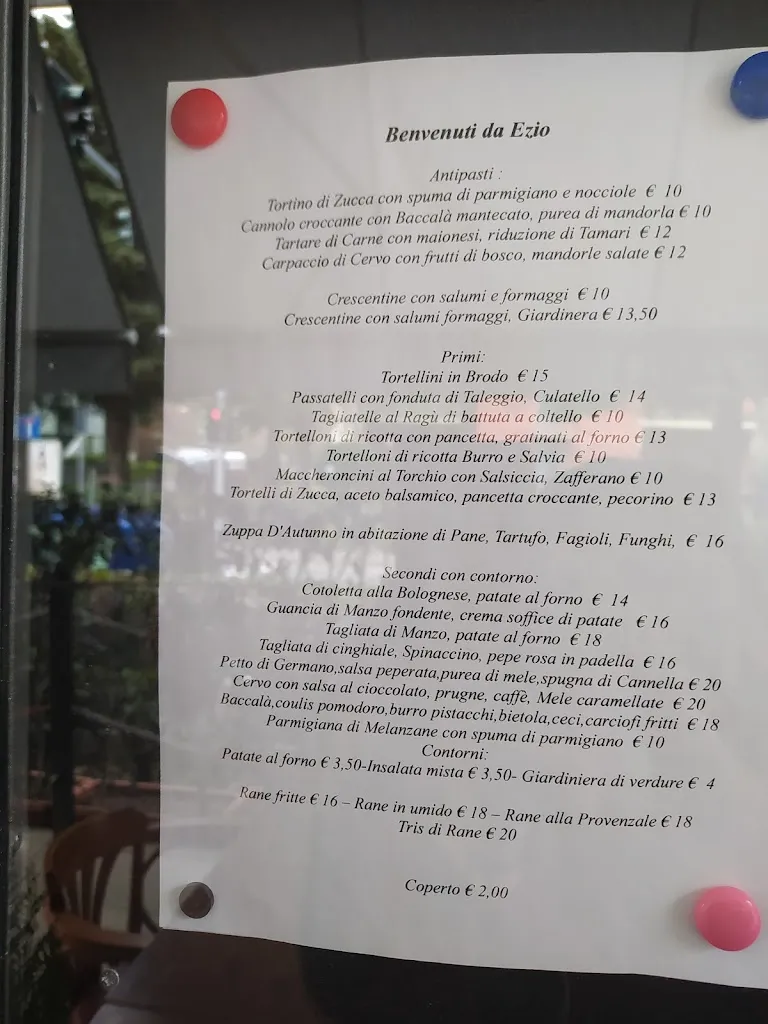 Benvenuti da Ezio
Antipasti :
Tortino di Zucca con spuma di parmigiano e nocciole € 10
Cannolo croccante con Baccalà mantecato, purea di mandorla € 10
Tartare di Carne con maionesi, riduzione di Tamari € 12
Carpaccio di Cervo con frutti di bosco, mandorle salate € 12
Crescentine con salumi e formaggi € 10
Crescentine con salumi formaggi, Giardinera € 13,50
Primi:
Tortellini in Brodo € 15
Passatelli con fonduta di Taleggio, Culatello € 14
Tagliatelle al Ragù di battuta a coltello € 10
Tortelloni di ricotta con pancetta, gratinati al forno € 13
Tortelloni di ricotta Burro e Salvia € 10
Maccheroncini al Torchio con Salsiccia, Zafferano € 10
Tortelli di Zucca, aceto balsamico, pancetta croccante, pecorino € 13
Zuppa D'Autunno in abitazione di Pane, Tartufo, Fagioli, Funghi, € 16
Secondi con contorno:
Cotoletta alla Bolognese, patate al forno € 14
Guancia di Manzo fondente, crema soffice di patate € 16
Tagliata di Manzo, patate al forno € 18
Tagliata di cinghiale, Spinaccino, pepe rosa in padella € 16
Petto di Germano,salsa peperata,purea di mele,spugna di Cannella € 20
Cervo con salsa al cioccolato, prugne, caffè, Mele caramellate € 20
Baccalà,coulis pomodoro,burro pistacchi,bietola,ceci,carciofi fritti € 18
Parmigiana di Melanzane con spuma di parmigiano € 10
Contorni:
Patate al forno € 3,50-Insalata mista € 3,50- Giardiniera di verdure € 4
Rane fritte € 16 – Rane in umido € 18 – Rane alla Provenzale € 18
Tris di Rane € 20
Coperto € 2,00